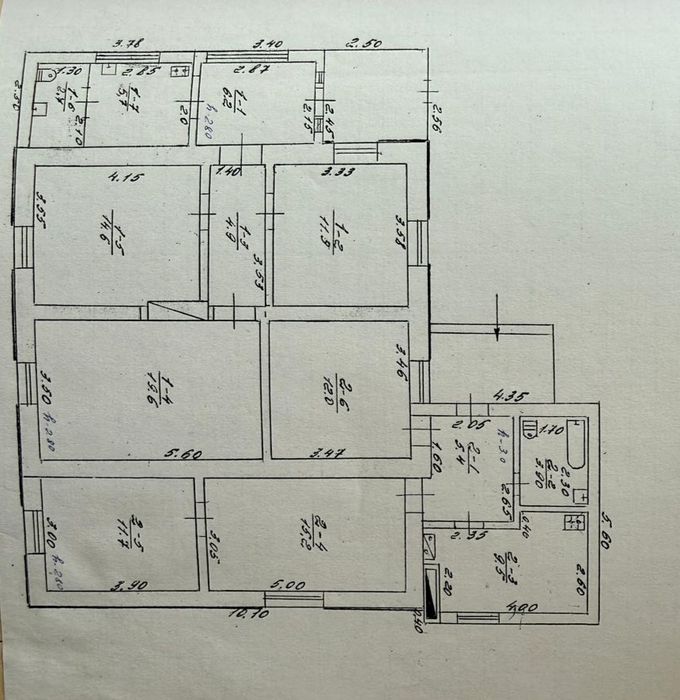 3.78
3.40
2.50
2.50
1.30
1-6
2.7
2.10
2.85
1-7
5.7
2.0
2.87
1-1
6.2
h.280
2.15
2.45
2.56
4.15
3.55
1-5
14.6
1.40
1-3
4.9
3.53
3.33
1-2
11.9
3.58
3.50
h.280
1-4
19.6
5.60
2-6
12.0
3.46
3.47
4.35
2.05
2-1
5.4
h-3.0
1.60
2.65
1.70
2-2
3.90
2.30
5.60
3.00
h.280
2-5
11.7
3.90
3.05
2-4
15.2
5.00
10.10
2.35
0.40
2-3
9.5
2.20
2.60
4.90
0.40